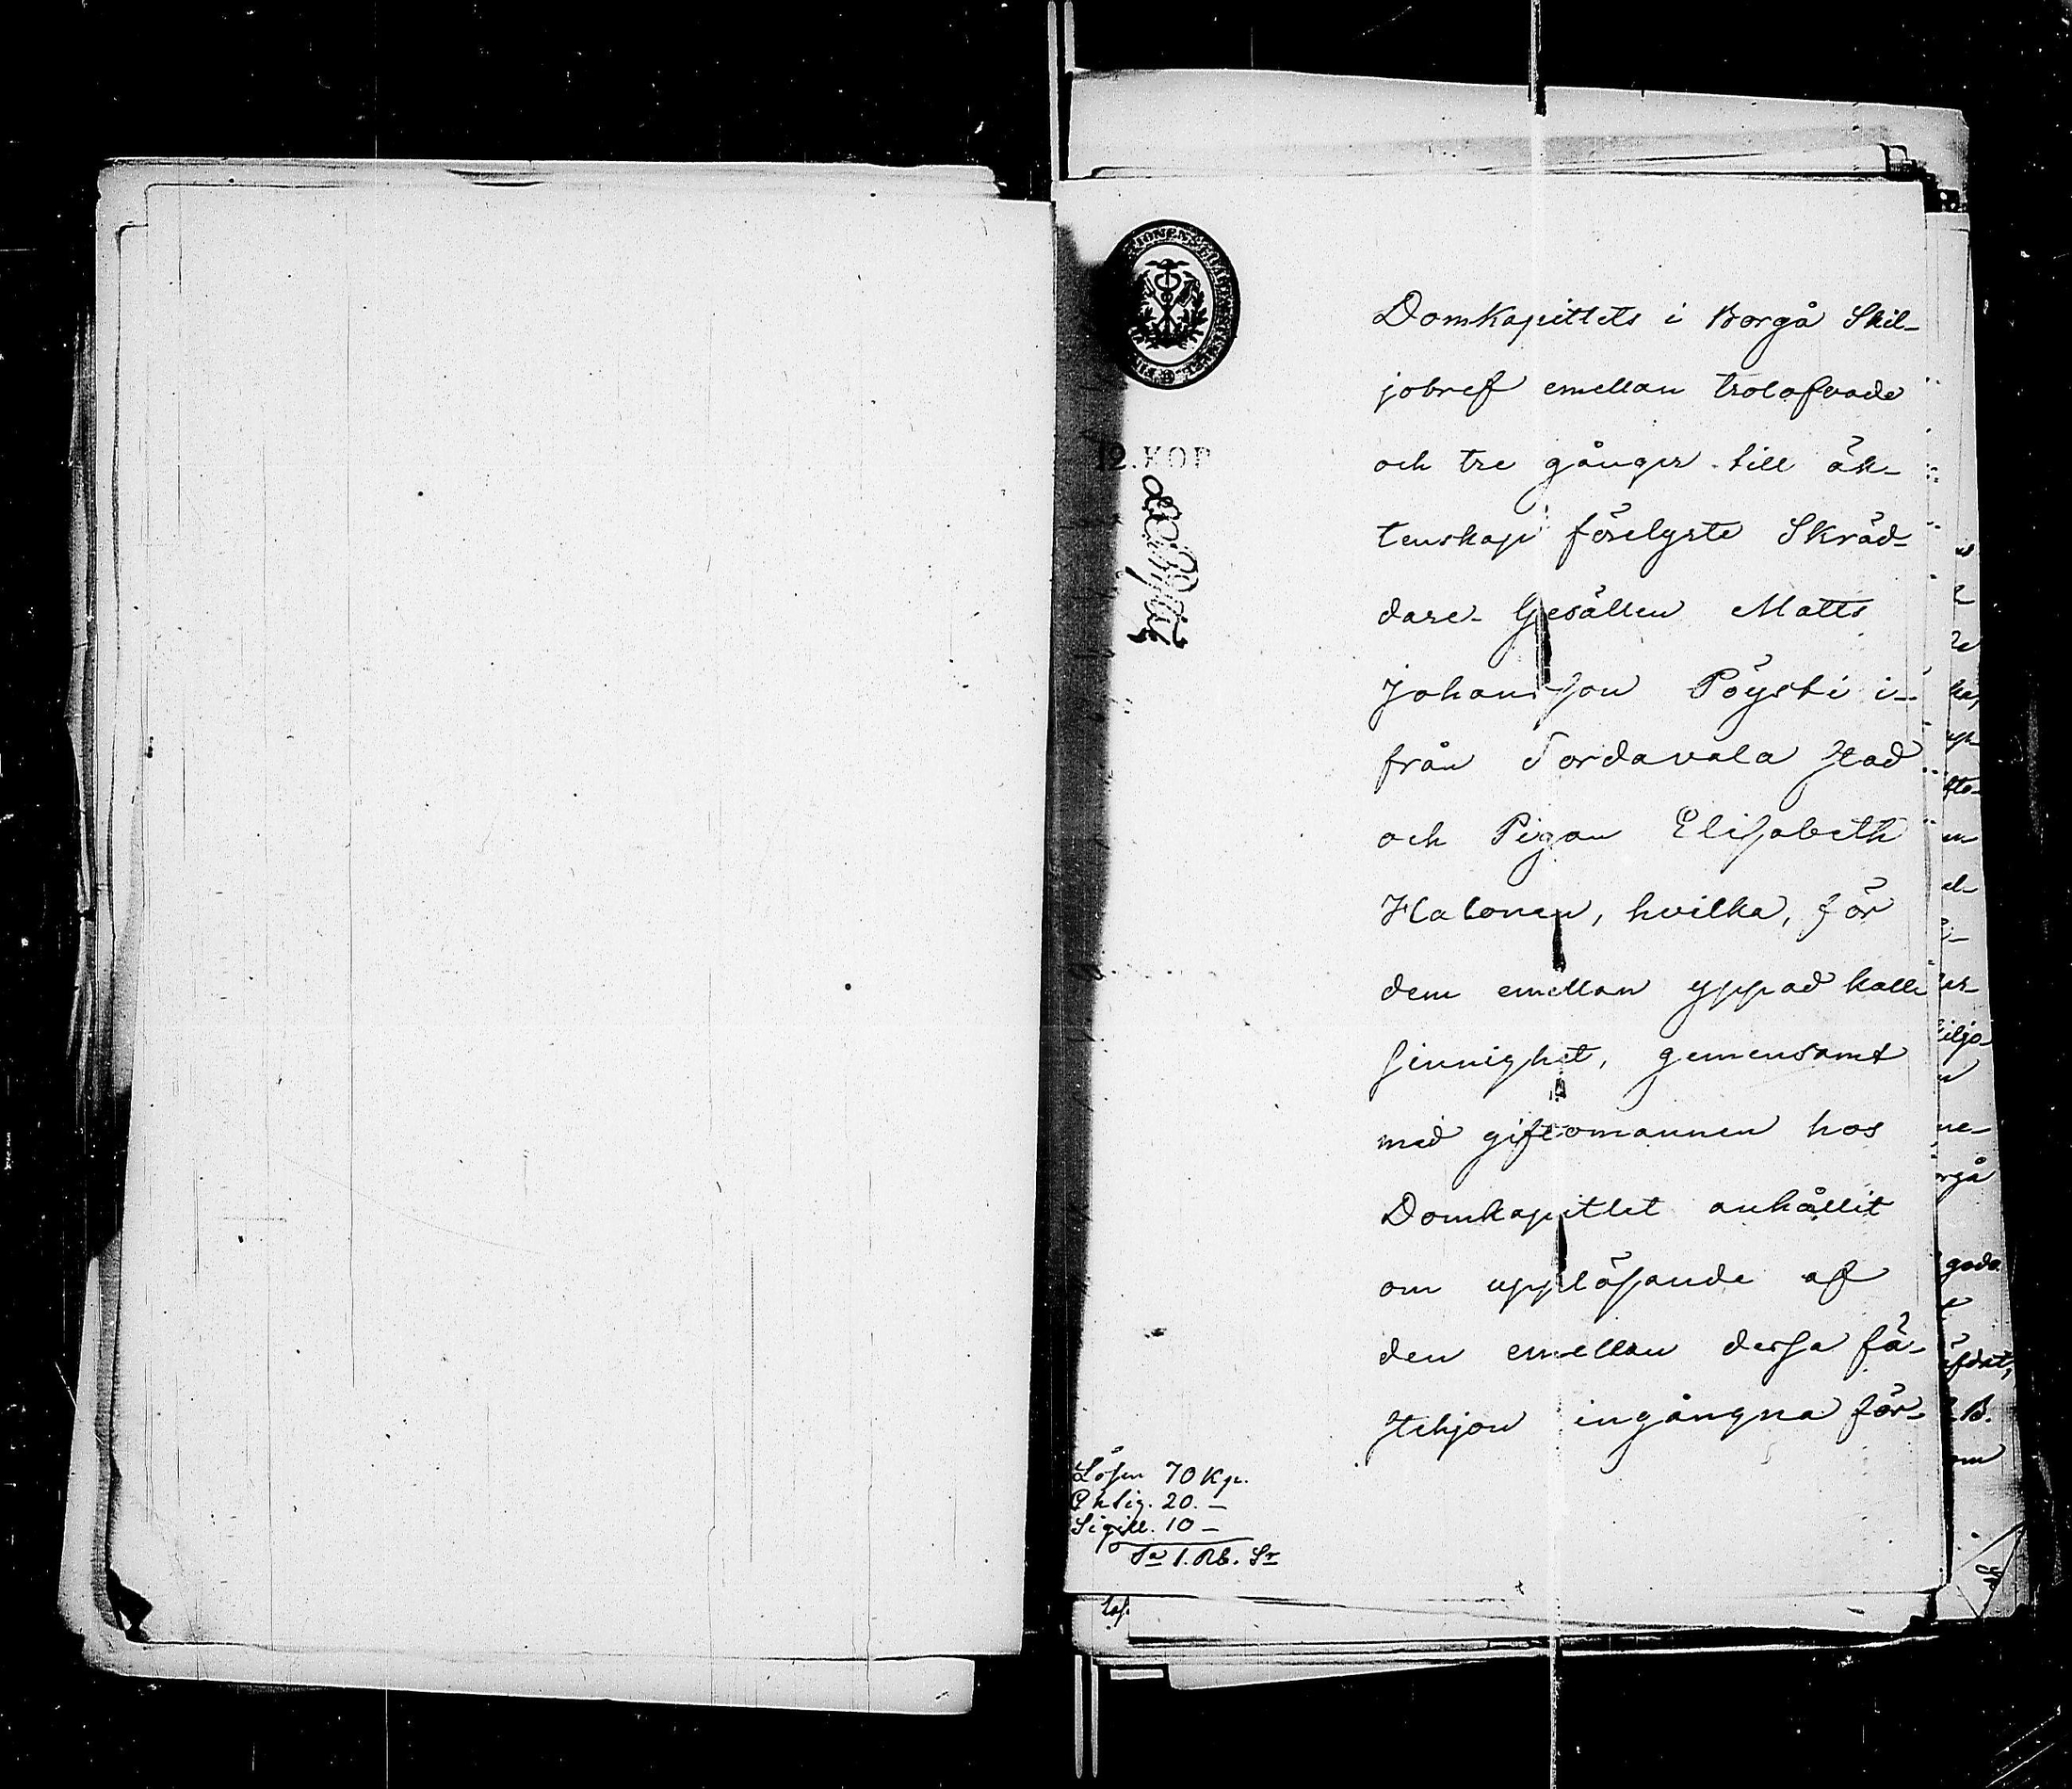 12. KOP
Domkapittlets i Borgå Skil-
jobref emellan trolofvade
och tre gånger till äk-
tenskap förelyste Skräd-
dare-Gesällen Matts
Johansson Pöysti i-
från Sordavala stad
och Pigan Elisabeth
Halonen, hvilka, för
dem emellan yppad kall-
sinnighet, gemensamt
med giftomannen hos
Domkapitlet anhållit
om upplösande af
den emellan dessa fä-
stehjon ingångna för-
Lösen 70 Kp.
Chtsig. 20. -
Sigill. 10 -
Sa 1. Rb. Sr